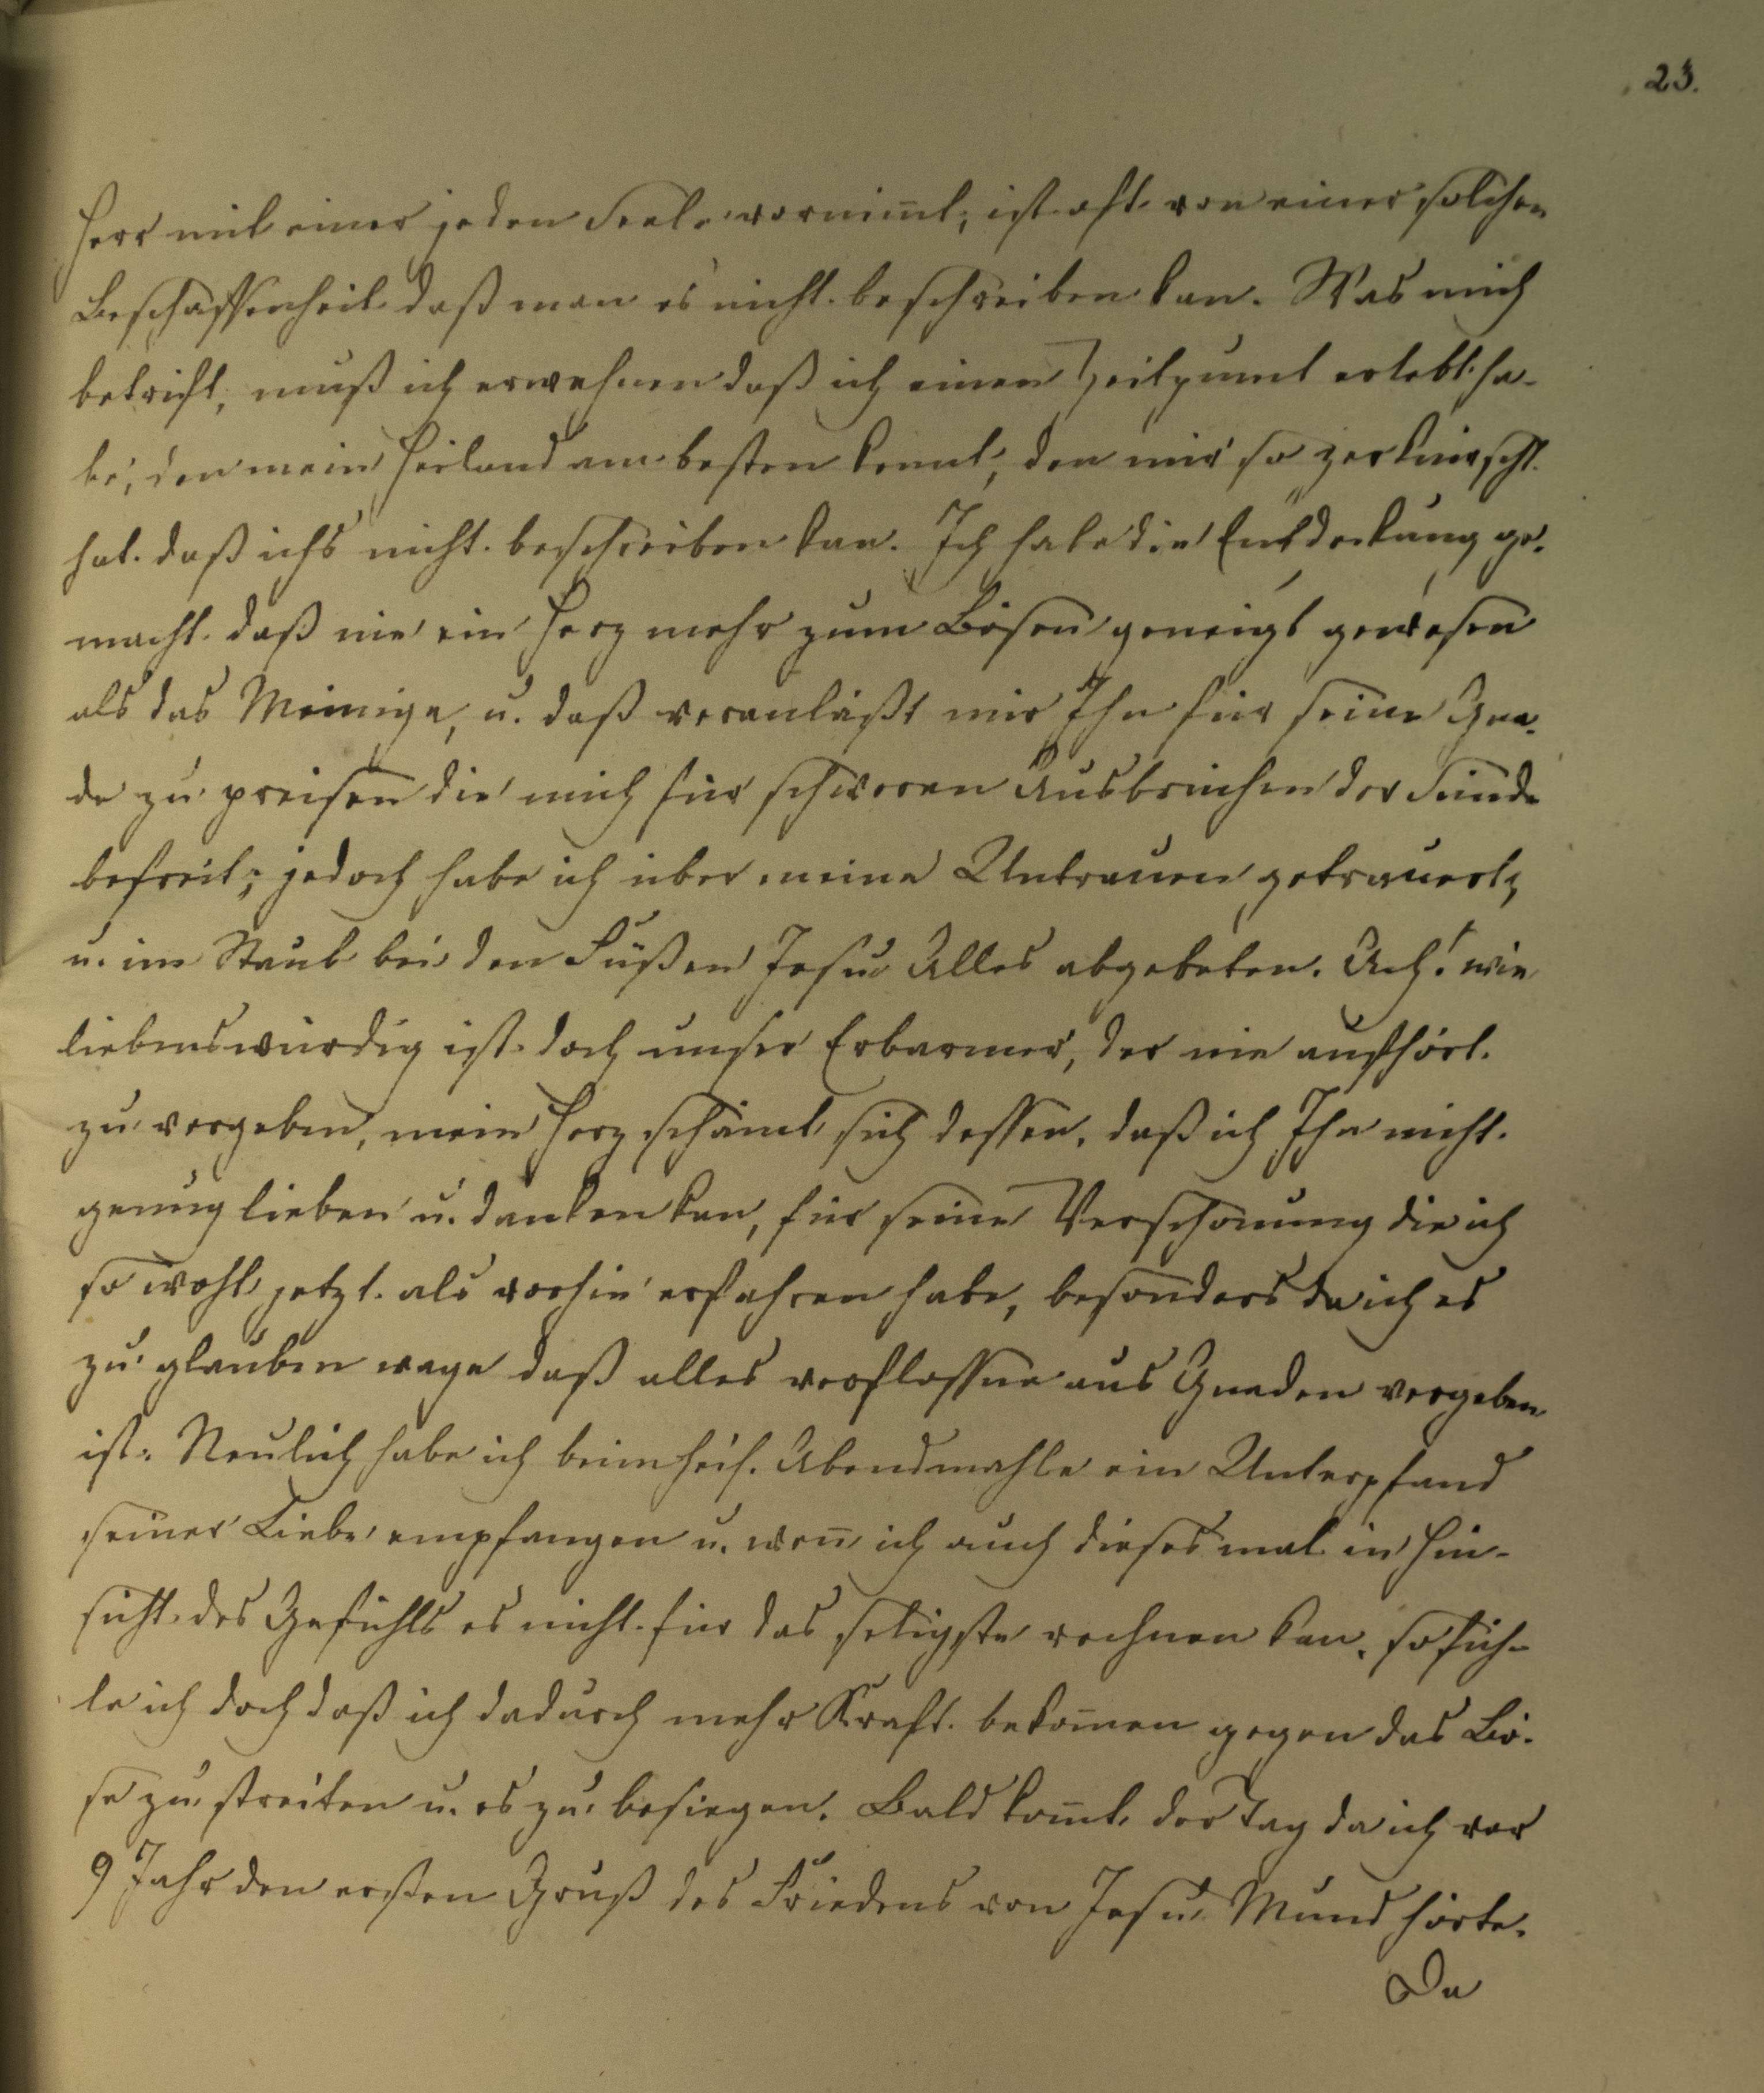 23.
Herr mit einer jeden Seele vornim̅t, ist oft von einer solchen
Beschaffenheit daß man es nicht beschreiben kan. Was mich
betrift, muß ich erwehnen daß ich einen Zeitpunct erlebt ha-
be, den mein Heiland am besten kennt, den mir so zerknirscht
hat daß ichs nicht beschreiben kan. Ich habe die Entdeckung ge-
macht daß nie ein Herz mehr zum Bösen geneigt gewesen
als das Meinige, u. daß veranläßt mir Ihn für seine Gna-
de zu preisen die mich für schweren Ausbrüchen der Sünde
befreit; jedoch habe ich über meine Untreuen getrauert,
u. im Staub bei den Füßen Jesu Alles abgebeten. Ach! wie
liebenswürdig ist doch unser Erbarmer, der nie aufhört
zu vergeben, mein Herz schämt sich dessen, daß ich Ihn nicht
genug lieben u. danken kan, für seine Verschonung die ich
so wohl jetzt als vorhin erfahren habe, besonders da ich es
zu glauben wage daß alles verflossne aus Gnaden vergeben
ist. Neulich habe ich beim heil. Abendmahle ein Unterpfand
seiner Liebe empfangen u. wen̅ ich auch dieses mal in Hin-
sicht des Gefühls es nicht für das seligste rechnen kan, so füh-
le ich doch daß ich dadurch mehr Kraft bekom̅en gegen das Bö-
se zu streiten u. es zu besiegen. Bald kom̅t der Tag da ich vor
9 Jahr den ersten Gruß des Friedens von Jesu Mund hörte.
Da